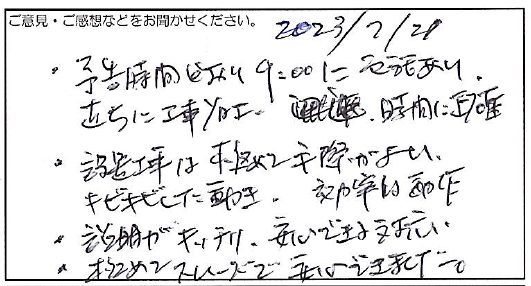 ご意見・ご感想などをお聞かせください。 2023/7/20
・予告時間どおり 9:00に お電話あり、
直ちに工事開始。 時間に正確
・設置工事は極めて手際がよい、
キビキビした動き。 効率的動作
・説明がキッチリ、安心できる対応
・極めてスムーズで安心できました。